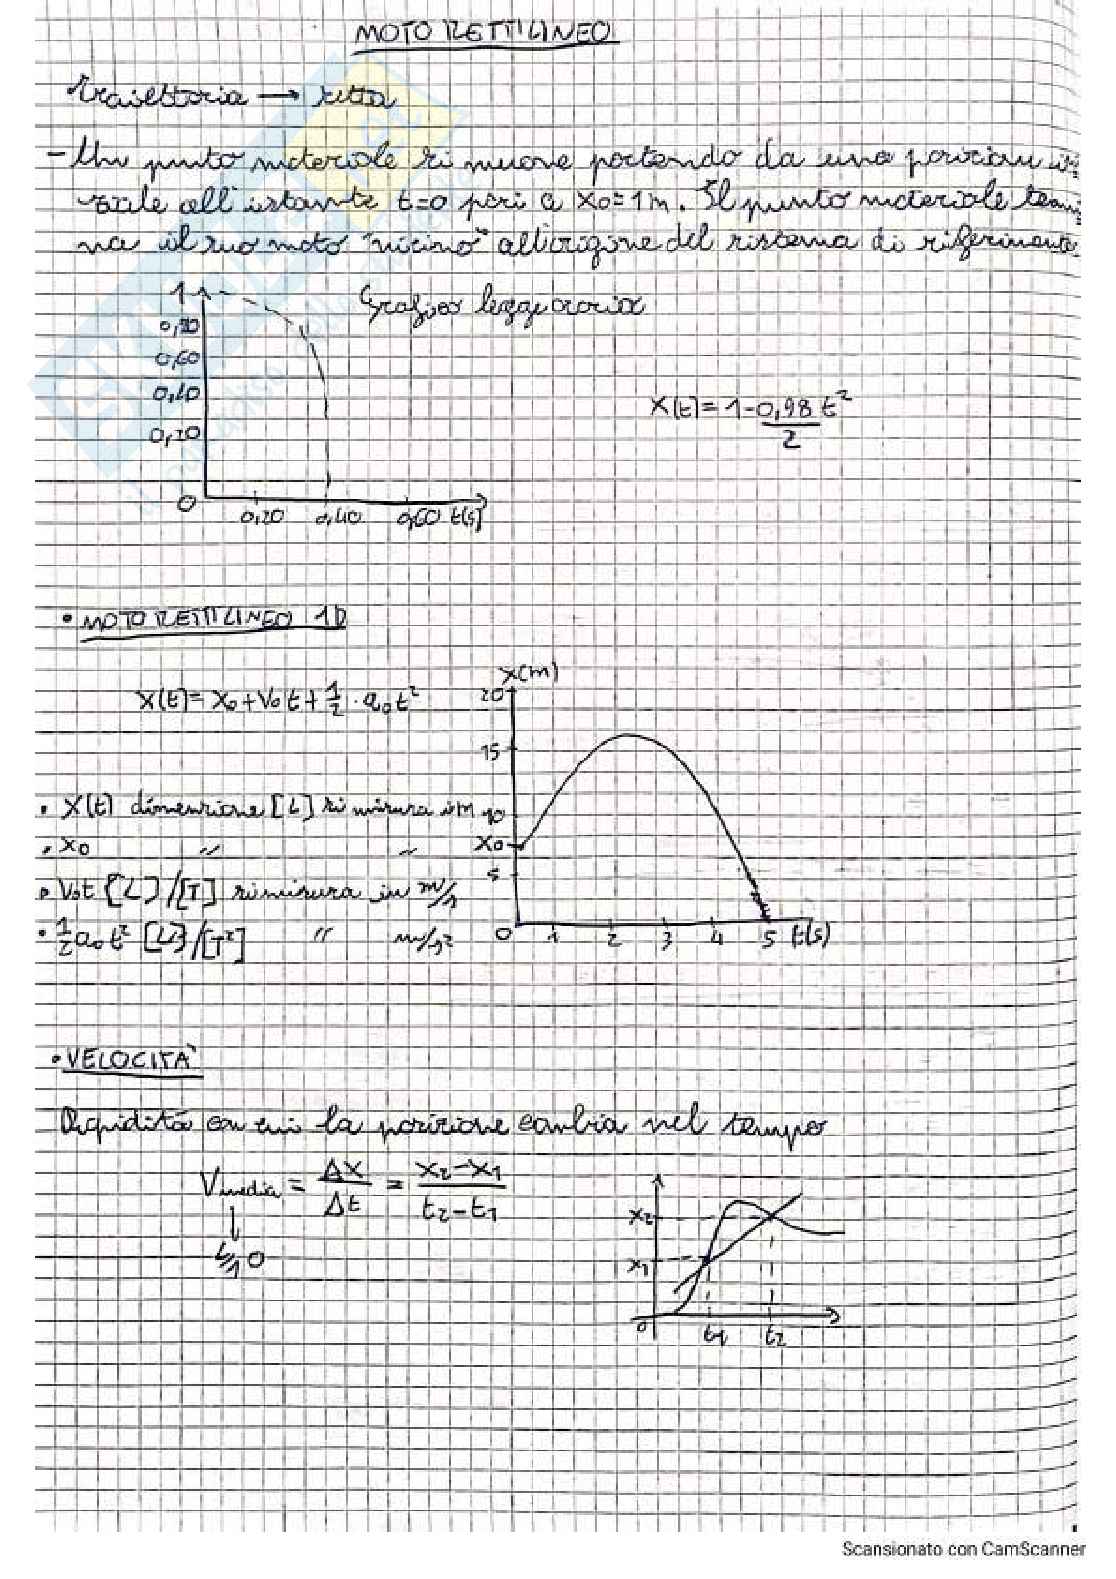 MOTO RETTILINEO
Traiettoria → retta
- Un punto materiale si muove partendo da una posizione ini-
ziale all'istante t=0 pari a x0=1m. Il punto materiale termi-
na il suo moto "vicino" all'origine del sistema di riferimento
1
0,80
0,60
0,40
0,20
0
0,20 0,40 0,60 t(s)
Grafico legge oraria
x(t)= 1-0,98 t²
2
• MOTO RETTILINEO 1D
x(t)= x0+v0t+1/2 · a0t²
x(m)
20
15
10
x0
5
0 1 2 3 4 5 t(s)
• x(t) dimensione [L] si misura in m
• x0 " "
• v0t [L]/[T] si misura in m/s
• 1/2 a0t² [L]/[T²] " m/s²
• VELOCITA'
Rapidità con cui la posizione cambia nel tempo
Vmedia = Δx/Δt = x2-x1/t2-t1
0
x2
x1
0 t1 t2
Scansionato con CamScanner